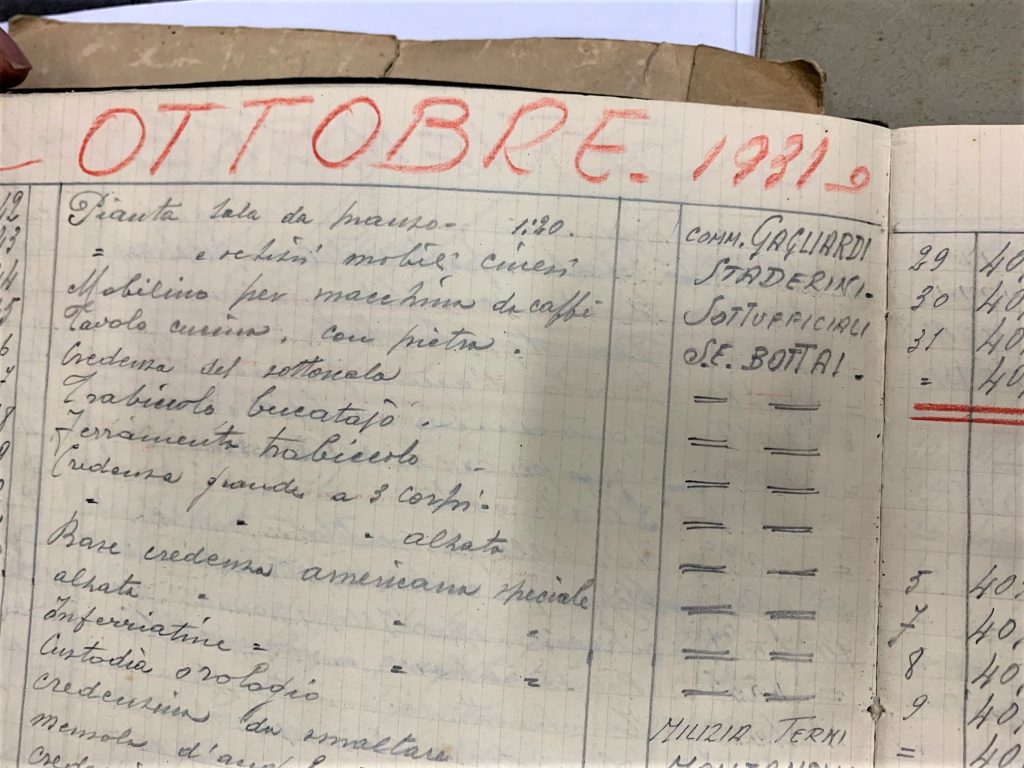 OTTOBRE. 1931.
42 Pianta sala da pranzo- 1:20. COMM. GAGLIARDI 29 40,
43 " e schizzi mobili cinesi STADERINI. 30 40,
44 Mobilino per macchina da caffè SOTTUFFICIALI 31 40,
45 Tavolo cucina, con pietra. S.E. BOTTAI. " 40,
6 Credenza del sottoscala = =
7 Trabiccolo bucatajo. = =
8 Ferramenta trabiccolo = =
9 Credenza grande a 3 corpi. = =
" " " alzata = = 5 40,
Base credenza americana speciale = = 7 40,
alzata " " " = = 8 40,
Inferriatine = = = = = 9 40,
Custodia orologio MILIZIA TERMI = 40,
credenzina da smaltare
mensola d'